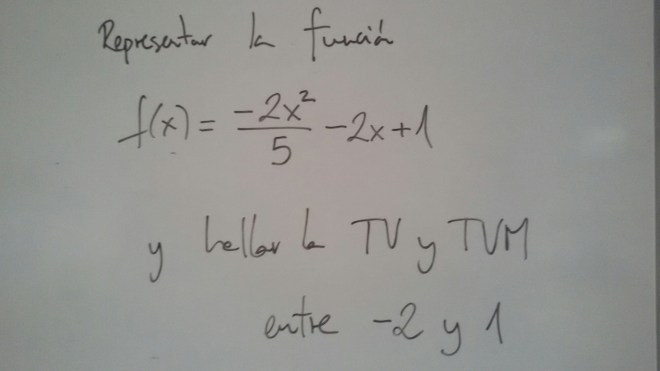 Representar la función
f(x) = -2x²/5 - 2x + 1
y hallar la TV y TVM
entre -2 y 1